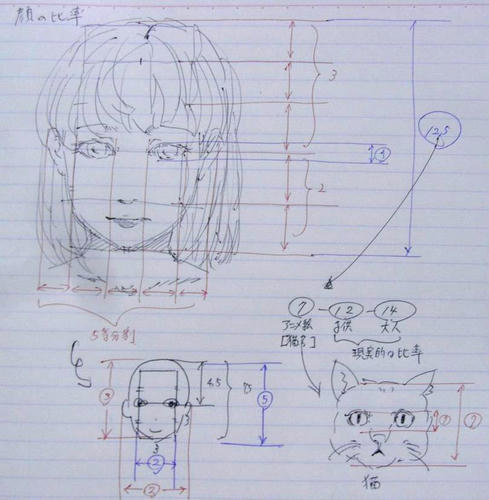 顔の比率
3
①
12.5
2
5等分割
⑦ー⑫ー⑭
アニメ絵 子供 大人
[猫等]
現実的の比率
4.5
③
⑤
3
3
②
②
①
⑦
猫